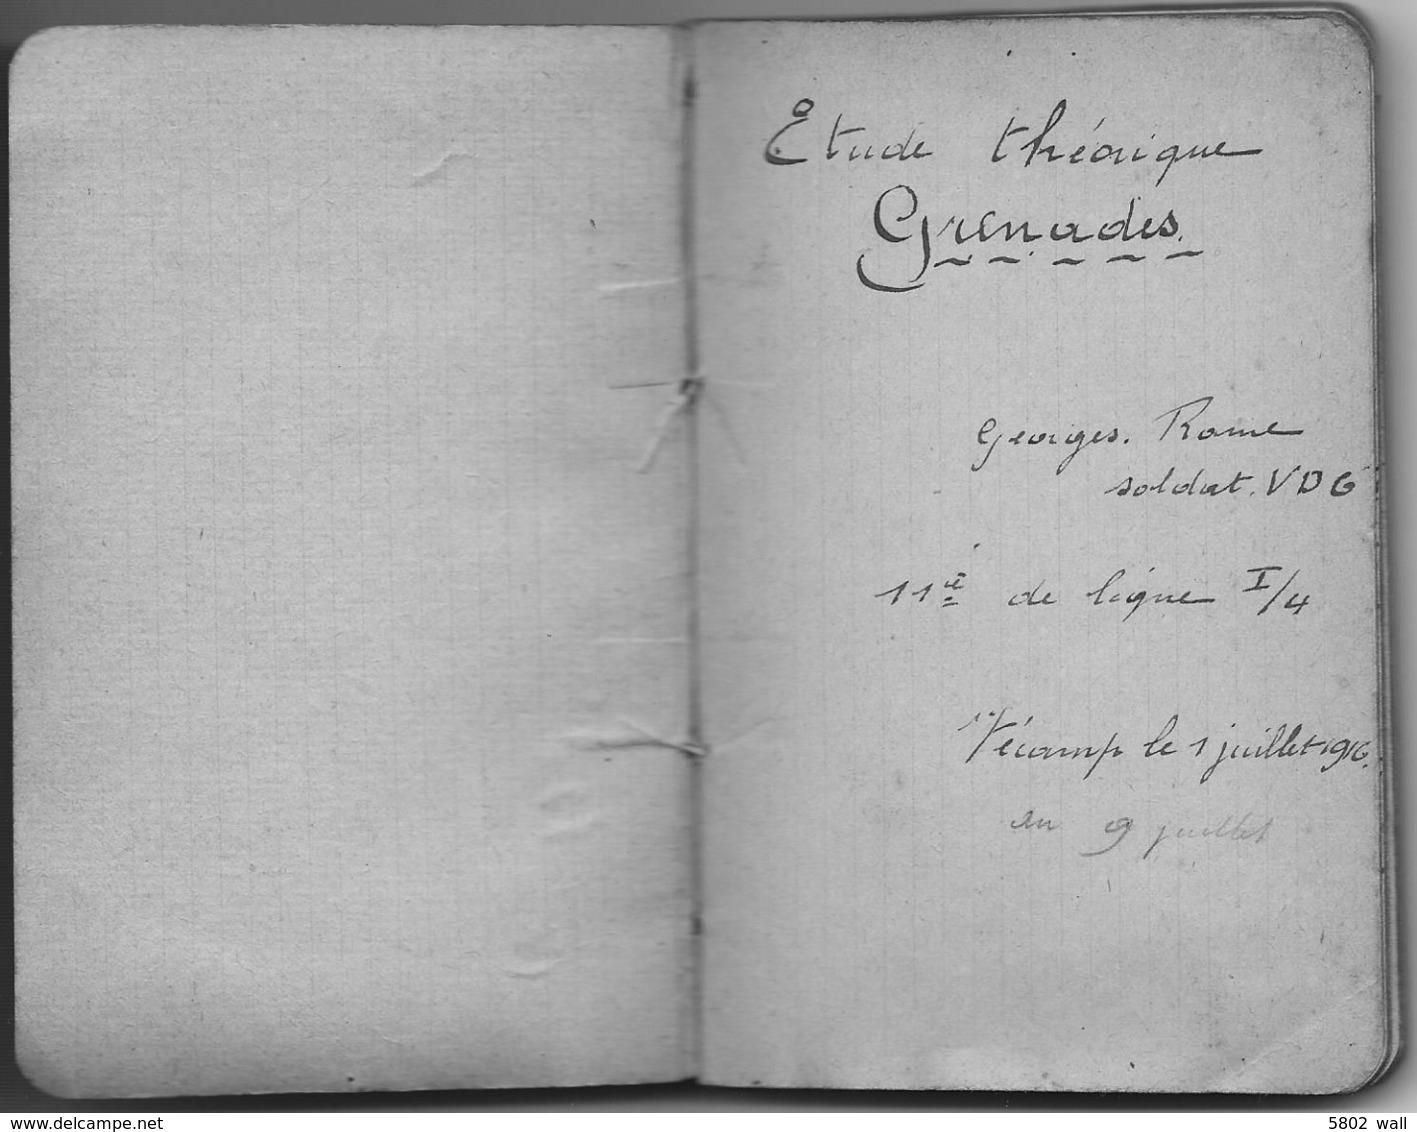 Etude théorique
Grenades.
Georges. Rome
soldat. VDG
11è de ligne I/4
Fécamp le 1 juillet 1916.
au 9 juillet
www.delcampe.net
5802 wall